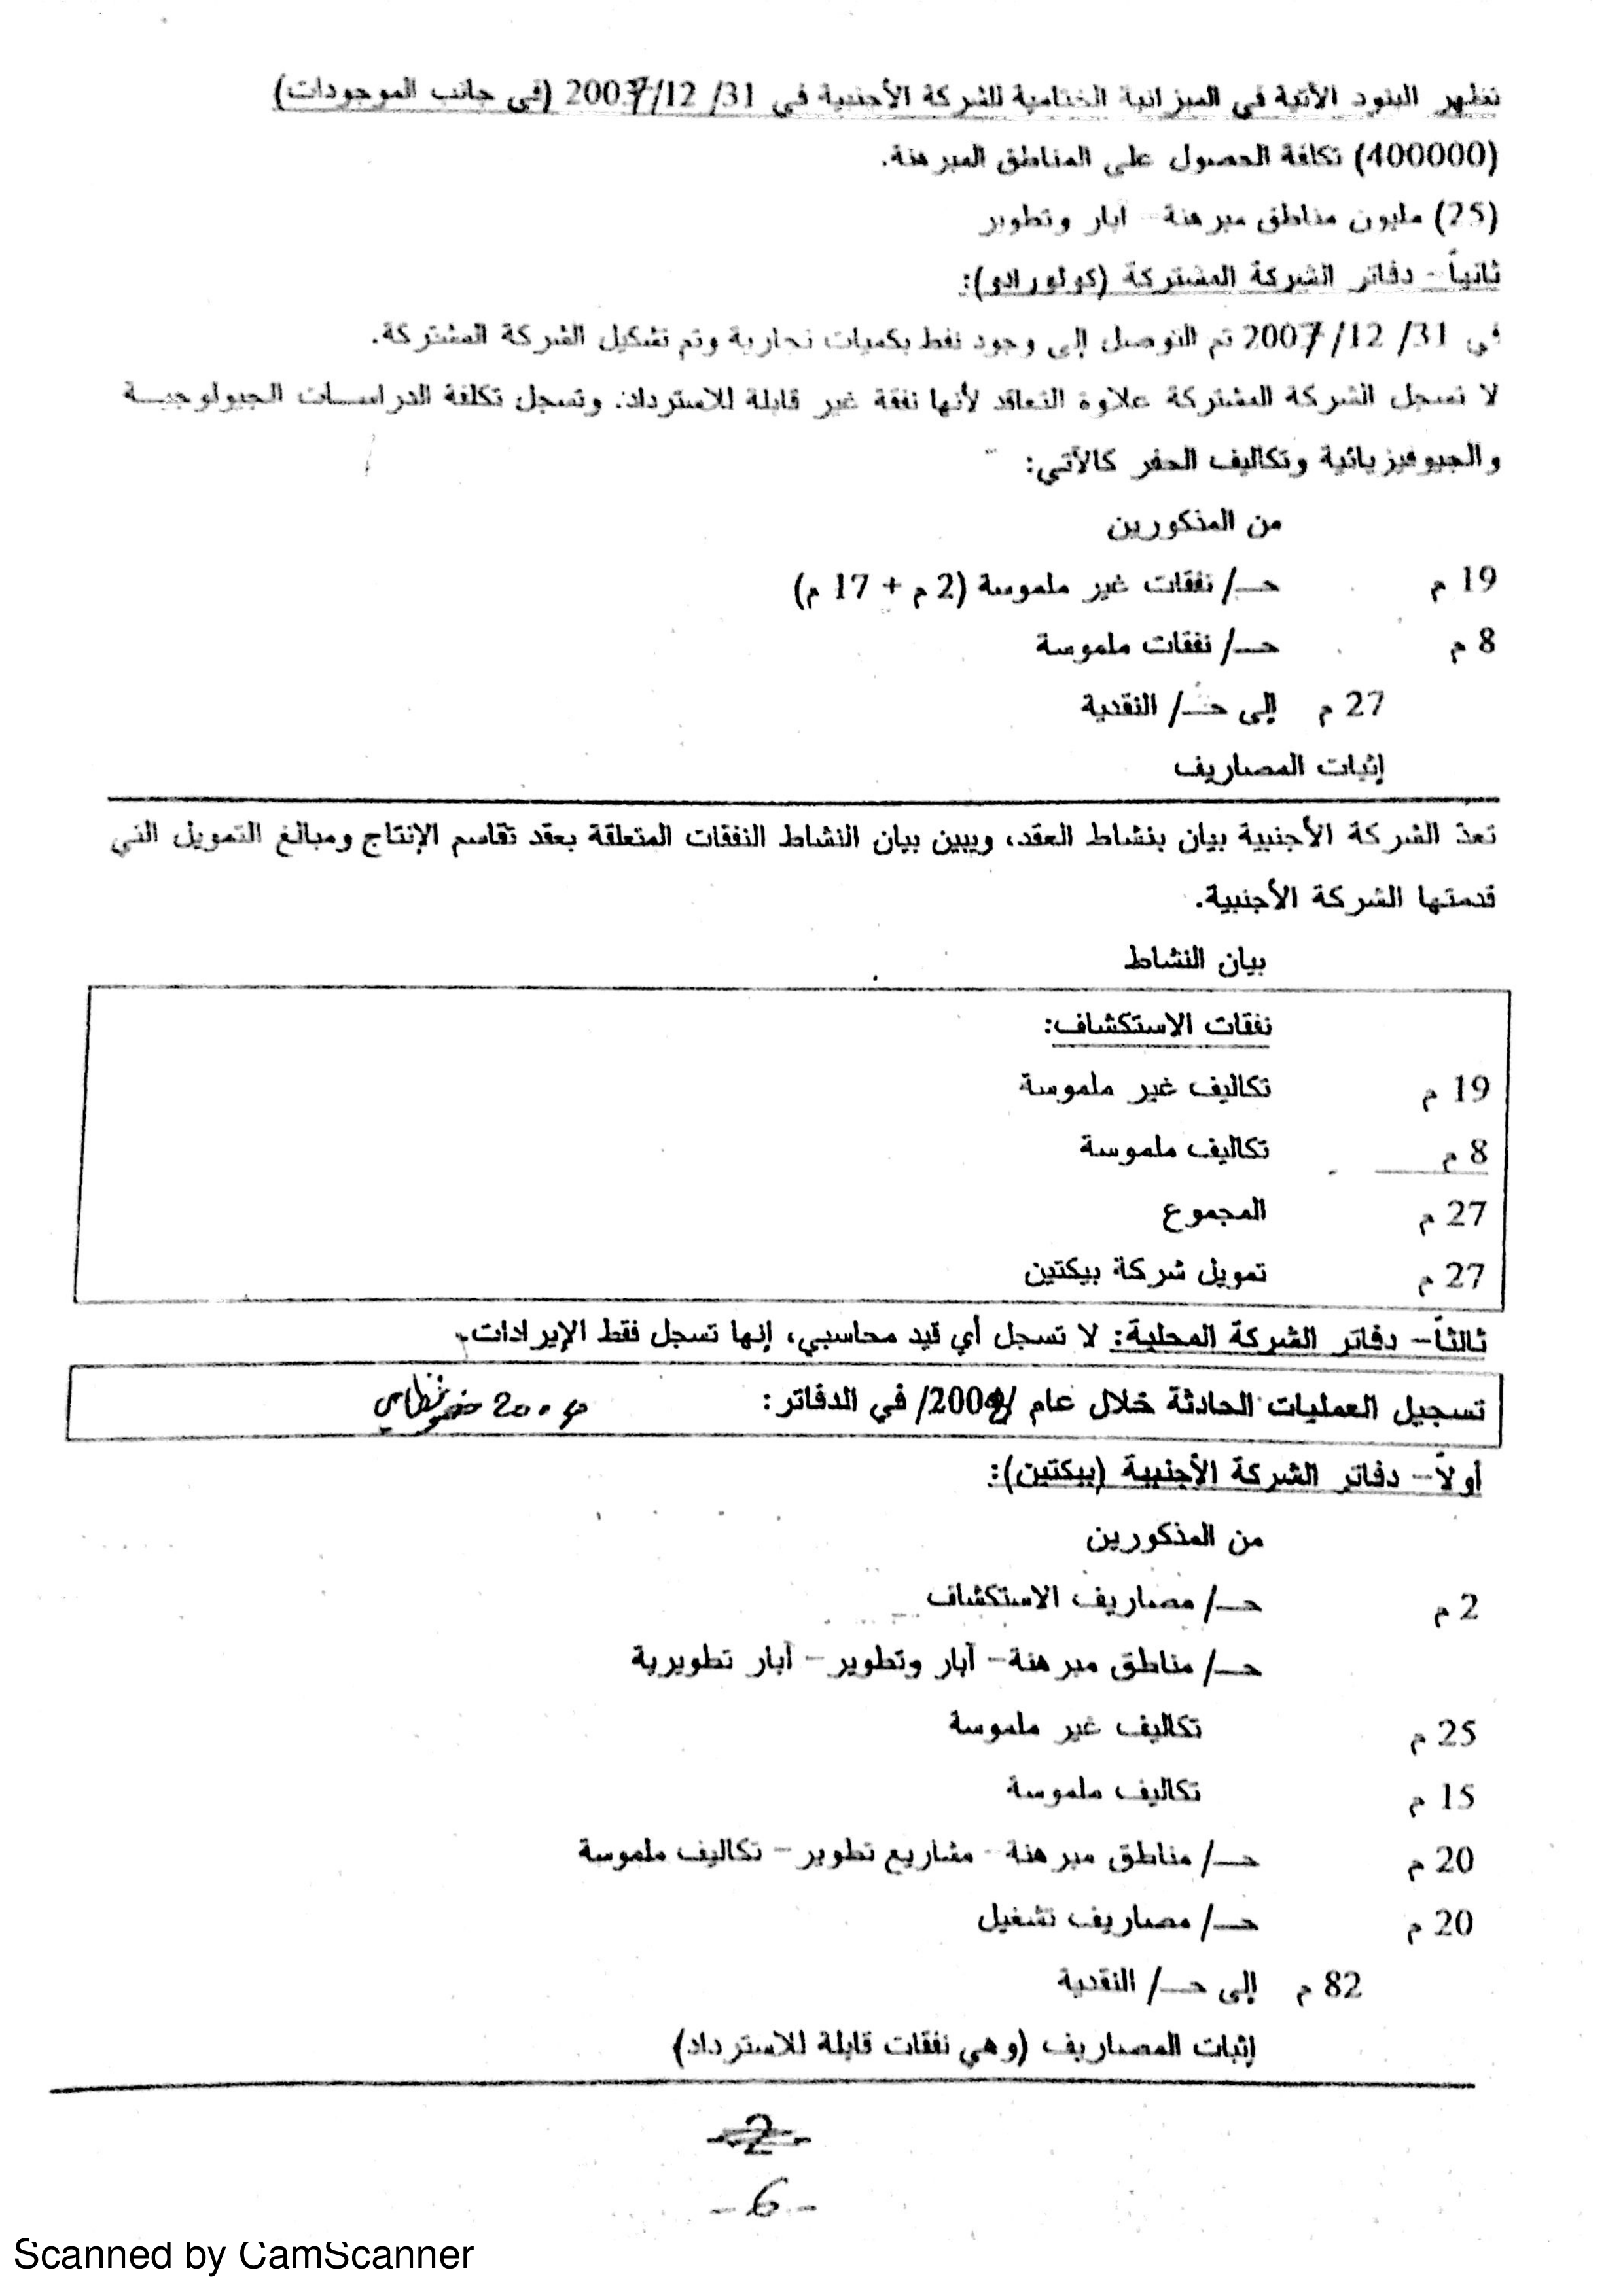 تظهر البنود الآتية في الميزانية الختامية للشركة الأجنبية في 31/ 12/ 2007 (في جانب الموجودات)
(400000) تكلفة الحصول على المناطق المبرهنة.
(25) مليون مناطق مبرهنة- آبار وتطوير
ثانياً- دفاتر الشركة المشتركة (كولورادو):
في 31/ 12/ 2007 تم التوصل إلى وجود نفط بكميات تجارية وتم تشكيل الشركة المشتركة.
لا تسجل الشركة المشتركة علاوة التعاقد لأنها نفقة غير قابلة للاسترداد. وتسجل تكلفة الدراسات الجيولوجية
والجيوفيزيائية وتكاليف الحفر كالآتي:
من المذكورين
19 م حـ/ نفقات غير ملموسة (2 م + 17 م)
8 م حـ/ نفقات ملموسة
27 م إلى حـ/ النقدية
إثبات المصاريف
تعدّ الشركة الأجنبية بيان بنشاط العقد، ويبين بيان النشاط النفقات المتعلقة بعقد تقاسم الإنتاج ومبالغ التمويل التي
قدمتها الشركة الأجنبية.
بيان النشاط
نفقات الاستكشاف:
19 م تكاليف غير ملموسة
8 م تكاليف ملموسة
27 م المجموع
27 م تمويل شركة بيكتين
ثالثاً- دفاتر الشركة المحلية: لا تسجل أي قيد محاسبي، إنها تسجل فقط الإيرادات.
تسجيل العمليات الحادثة خلال عام /200/ في الدفاتر:
أولاً- دفاتر الشركة الأجنبية (بيكتين):
من المذكورين
2 م حـ/ مصاريف الاستكشاف
حـ/ مناطق مبرهنة- آبار وتطوير- آبار تطويرية
25 م تكاليف غير ملموسة
15 م تكاليف ملموسة
20 م حـ/ مناطق مبرهنة- مشاريع تطوير- تكاليف ملموسة
20 م حـ/ مصاريف تشغيل
82 م إلى حـ/ النقدية
إثبات المصاريف (وهي نفقات قابلة للاسترداد)
-2-
-6-
Scanned by CamScanner